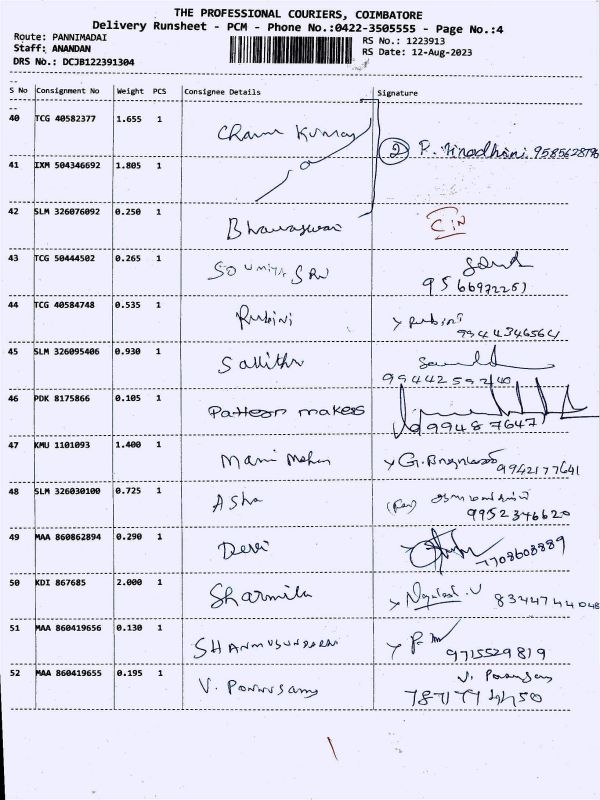 THE PROFESSIONAL COURIERS, COIMBATORE
Delivery Runsheet - PCM - Phone No.:0422-3505555 - Page No.:4
Route: PANNIMADAI RS No.: 1223913
Staff: ANANDAN RS Date: 12-Aug-2023
DRS No.: DCJB122391304
S No Consignment No Weight PCS Consignee Details Signature
40 TCG 40582377 1.655 1 Kumar
② P. 9585628796
41 IXM 504346692 1.805 1
42 SLM 326076092 0.250 1
43 TCG 50444502 0.265 1 SOUMIYA SRI
9566972251
44 TCG 40584748 0.535 1 Rubini Rubini
9944346564
45 SLM 326095406 0.930 1
9944259240
46 PDK 8175866 0.105 1 Pattern makers
9948 87647
47 KMU 1101093 1.400 1 Mani Mohan G.
9942177641
48 SLM 326030100 0.725 1 Asha
9952346620
49 MAA 860862894 0.290 1 Devi
7708608889
50 KDI 867685 2.000 1 Sharmila
8344744048
51 MAA 860419656 0.130 1 SHANMUSUNDARAM
9715529819
52 MAA 860419655 0.195 1 V. Ponnusamy V. Ponnusamy